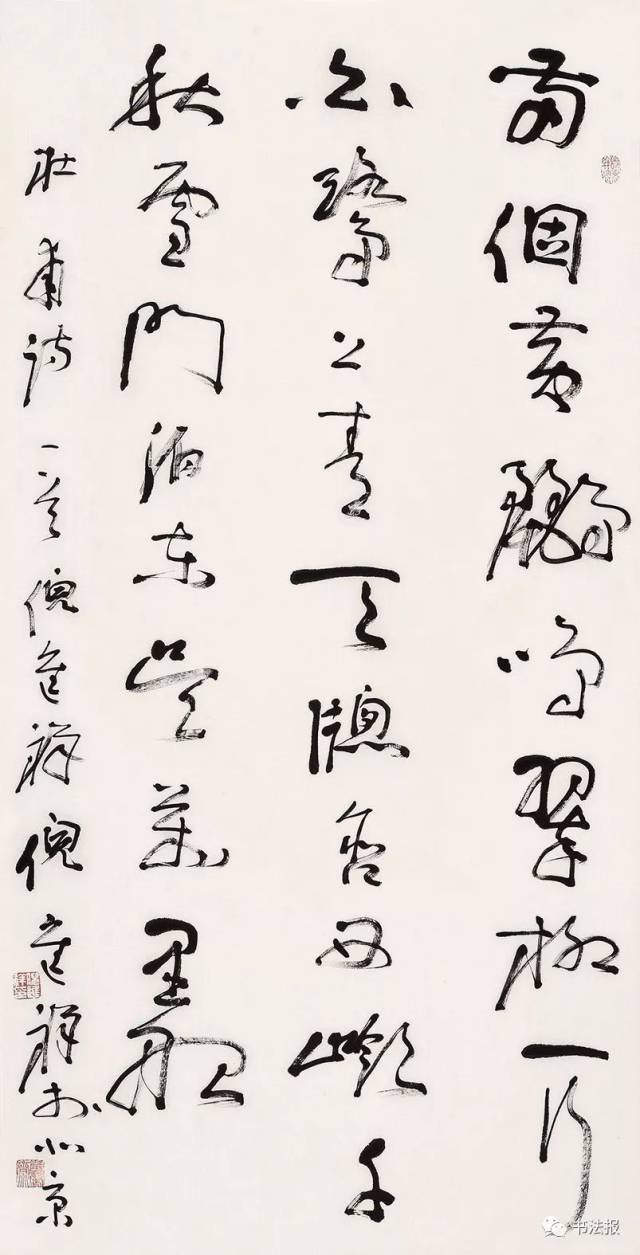 兩個黃鸝鳴翠柳一行
白鷺上青天牕含西嶺千
秋雪門泊東吳萬里船
杜甫詩一首倪進祥倪進祥於北京
书法报